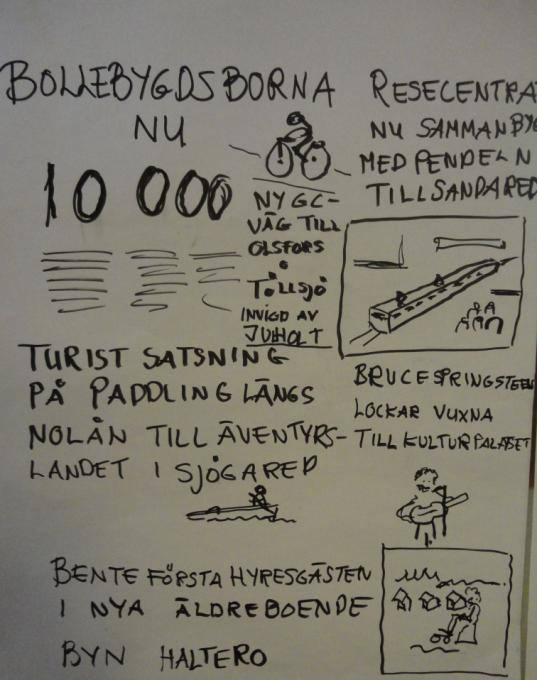 BOLLEBYGDSBORNA
NU
10 000
NY GC-
VÄG TILL
OLSFORS
&
TÖLLSJÖ
INVIGD AV
JUHOLT
RESECENTRA
NU SAMMANBY
MED PENDELN
TILL SANDARED
TURIST SATSNING
PÅ PADDLING LÄNGS
NOLÅN TILL ÄVENTYRS-
LANDET I SJÖGARED
BRUCE SPRINGSTEEN
LOCKAR VUXNA
TILL KULTURPALATSET
BENTE FÖRSTA HYRESGÄSTEN
I NYA ÄLDREBOENDE
BYN HALTERO